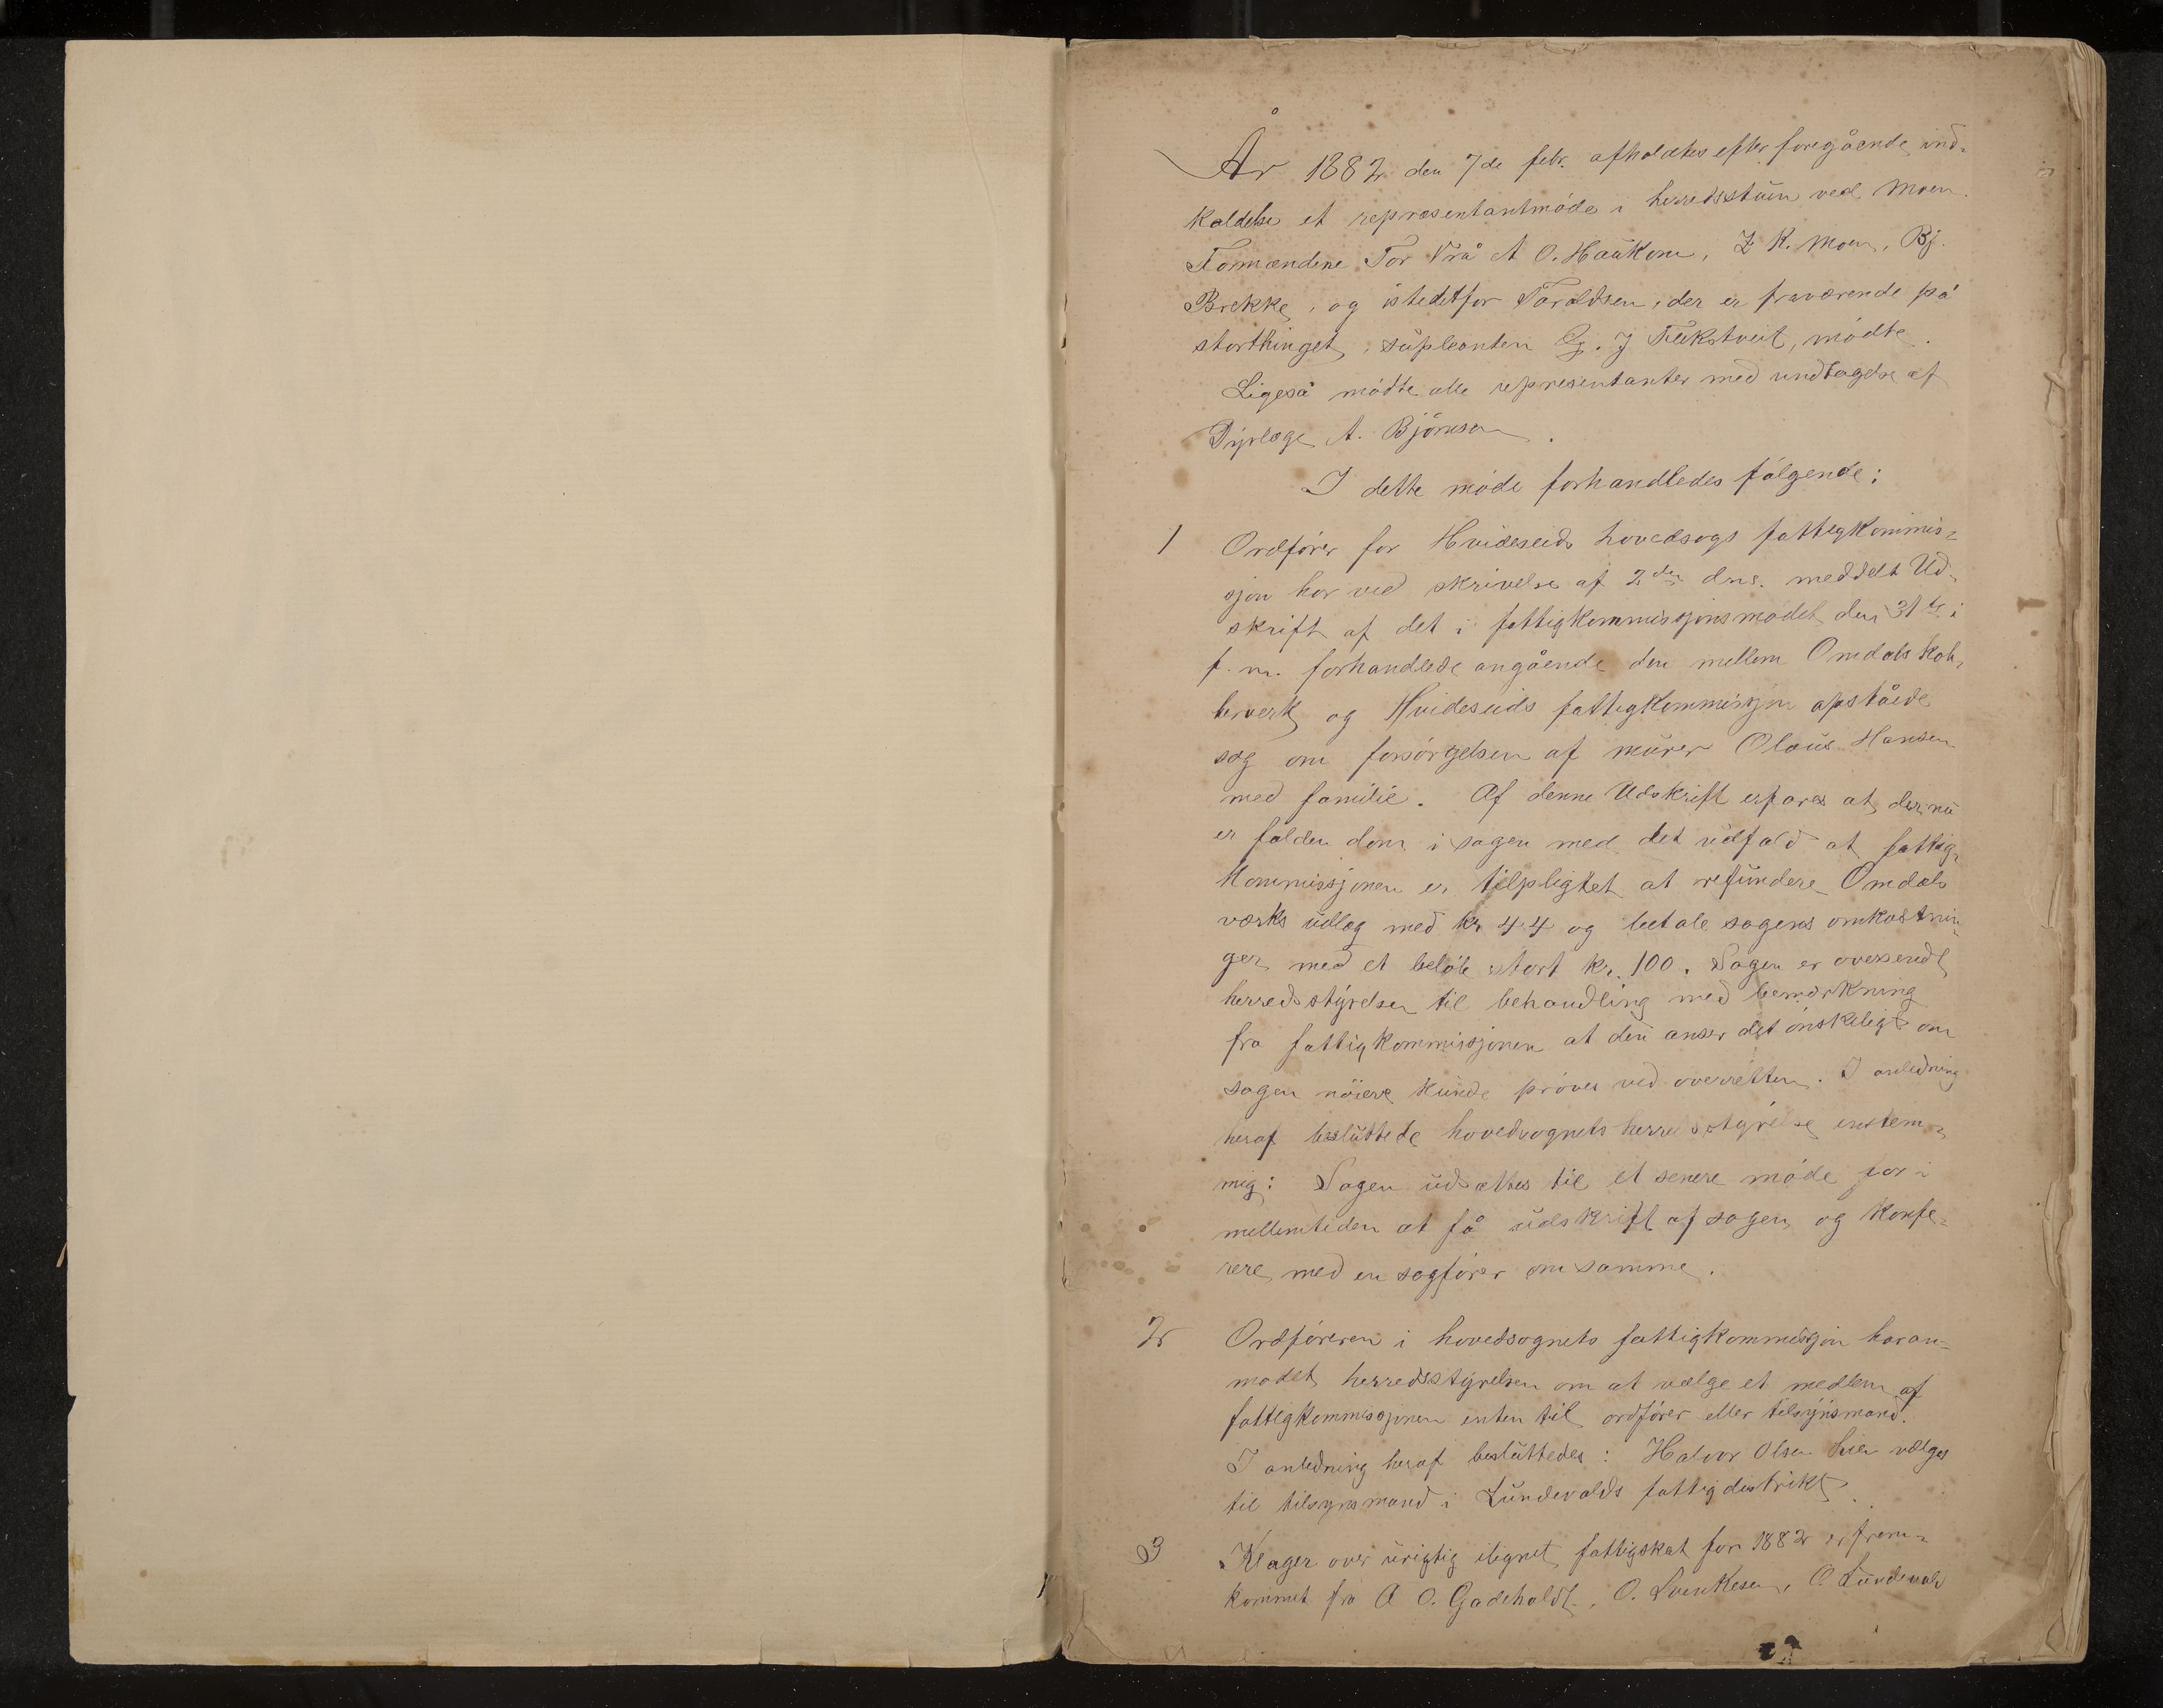 År 1882 den 7de febr. afholdtes efter foregående ind-
kaldelse et repræsentantmøde i herredsstuen ved Moen.
Formændene Tor Vrå A O. Haukom, Z K. Moen, Bj.
Brekke, og istedetfor Taraldsen, der er fraværende på
storthinget, supleanten G. J Tveitstveit, mødte.
Ligeså mødte alle repræsentanter med undtagelse af
Dyrlæge A. Bjørnsen.
I dette møde forhandledes følgende:
1 Ordfører for Hvideseids hovedsogs fattigkommis-
sjon har ved skrivelse af 2den dns. meddelt Ud-
skrift af det i fattigkommissjonsmødet den 31te i
f. m. forhandlede angående den mellem Omdals Kob-
berverk og Hvideseids fattigkommisjon opståede
sag om forsørgelsen af murer Olaus Hansen
med familie. Af denne Udskrift erfares at der nu
er falden dom i sagen med det udfald at fattig-
kommissjonen er tilpligtet at refundere Omdals
værks udlæg med kr 44 og betale sagens omkostnin-
ger med et beløb stort kr. 100. Sagen er oversendt
herredsstyrelsen til behandling med bemærkning
fra fattigkommissjonen at den anser det ønskeligt om
sagen nøiere kunde prøves ved overretten. I anledning
heraf besluttede hovedsognets herredsstyrelse enstem-
mig: Sagen udsættes til et senere møde for i
mellemtiden at få udskrift af sagen og konfe-
rere med en sagfører om samme.
2 Ordføreren i hovedsognets fattigkommissjon har an-
modet herredsstyrelsen om at vælge et medlem af
fattigkommissjonen enten til ordfører eller tilsynsmand.
I anledning heraf besluttedes: Halvor Olsen Lien vælges
til tilsynsmand i Lundevalds fattigdistrikt.
3 Klager over urigtig ilignet fattigskat for 1882 er frem-
kommet fra A O. Gadeholdt, O. Svenkesen, O Lundevald